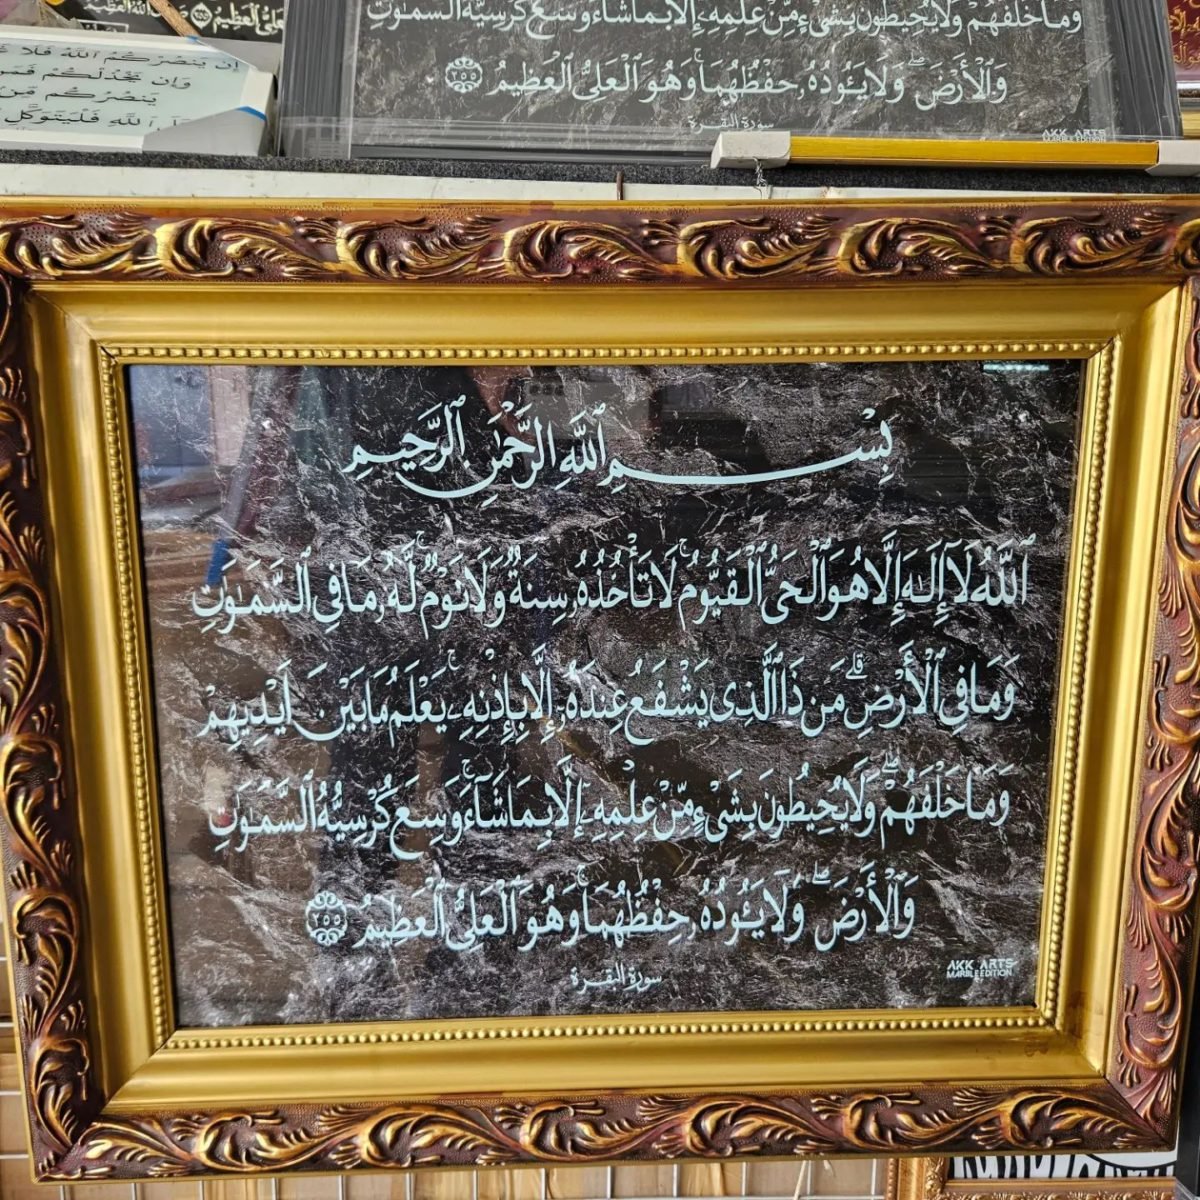 إِن يَنصُرْكُمُ اللَّهُ فَلَا
وَإِن يَخْذُلْكُمْ فَمَن
يَنصُرُكُم مِّن
اللَّهِ فَلْيَتَوَكَّلِ
وَمَا خَلْفَهُمْ وَلَا يُحِيطُونَ بِشَيْءٍ مِّنْ عِلْمِهِ إِلَّا بِمَا شَاءَ وَسِعَ كُرْسِيُّهُ السَّمَٰوَٰتِ
وَالْأَرْضَ ۖ وَلَا يَـُٔودُهُۥ حِفْظُهُمَا ۚ وَهُوَ الْعَلِيُّ الْعَظِيمُ ٢٥٥
سورة البقرة
AKK ARTS
MARBLE EDITION
بِسْمِ ٱللَّهِ ٱلرَّحْمَٰنِ ٱلرَّحِيمِ
ٱللَّهُ لَآ إِلَٰهَ إِلَّا هُوَ ٱلْحَىُّ ٱلْقَيُّومُ ۚ لَا تَأْخُذُهُۥ سِنَةٌ وَلَا نَوْمٌ ۚ لَّهُۥ مَا فِى ٱلسَّمَٰوَٰتِ
وَمَا فِى ٱلْأَرْضِ ۗ مَن ذَا ٱلَّذِى يَشْفَعُ عِندَهُۥٓ إِلَّا بِإِذْنِهِۦ ۚ يَعْلَمُ مَا بَيْنَ أَيْدِيهِمْ
وَمَا خَلْفَهُمْ ۖ وَلَا يُحِيطُونَ بِشَىْءٍ مِّنْ عِلْمِهِۦٓ إِلَّا بِمَا شَآءَ ۚ وَسِعَ كُرْسِيُّهُ ٱلسَّمَٰوَٰتِ
وَٱلْأَرْضَ ۖ وَلَا يَـُٔودُهُۥ حِفْظُهُمَا ۚ وَهُوَ ٱلْعَلِىُّ ٱلْعَظِيمُ ٢٥٥
سورة البقرة
AKK ARTS
MARBLE EDITION